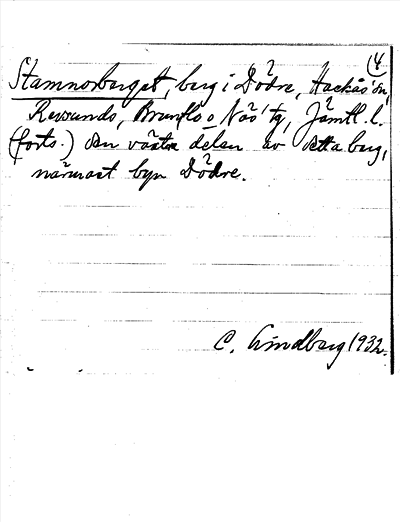 (4
Stamnorberget, berg i Dödre, Hackås sn,
Revsunds, Brunflo o Näs tg, Jämtl. l.
(forts.) den västra delen av detta berg,
närmast byn Dödre.
C. Lindberg 1932.